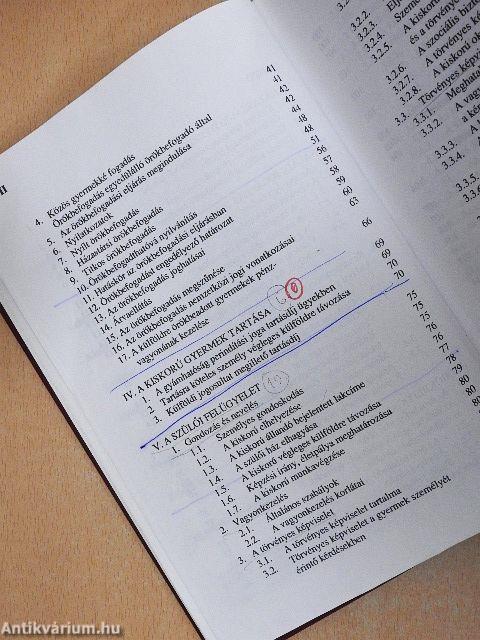 II
4. Közös gyermekké fogadás
Örökbefogadás egyedülálló örökbefogadó által
5. Az örökbefogadási eljárás megindulása
6. Nyilatkozatok
7. Nyílt örökbefogadás
8. Házastársi örökbefogadás
9. Titkos örökbefogadás
10. Örökbefogadhatóvá nyilvánítás
11. Hatáskör az örökbefogadási eljárásban
12. Örökbefogadást engedélyező határozat
13. Az örökbefogadás joghatásai
14. Árvaellátás
15. Az örökbefogadás megszűnése
16. Az örökbefogadás nemzetközi jogi vonatkozásai
17. A külföldre örökbeadott gyermekek pénz-
vagyonának kezelése
41
41
42
42
44
48
48
51
56
57
58
59
60
63
66
IV. A KISKORÚ GYERMEK TARTÁSA
1. A gyámhatóság perindítási joga tartásdíj ügyekben 69
2. Tartásra köteles személy végleges külföldre távozása 69
3. Külföldi jogosultat megillető tartásdíj 70
70
V. A SZÜLŐI FELÜGYELET
1. Gondozás és nevelés
1.1. Személyes gondoskodás
1.2. A kiskorú elhelyezése
1.3. A kiskorú állandó bejelentett lakcíme
1.4. A szülői ház elhagyása
1.5. A kiskorú végleges külföldre távozása
1.6. Képzési irány, életpálya meghatározása
1.7. A kiskorú munkavégzése
2. Vagyonkezelés
2.1. Általános szabályok
2.2. A vagyonkezelés korlátai
3. A törvényes képviselet
3.1. A törvényes képviselet tartalma
3.2. Törvényes képviselet a gyermek személyét
érintő kérdésekben
75
75
75
76
76
77
78
79
80
80
3.2.2.
3.2.3.
3.2.4.
3.2.5.
3.2.6.
3.2.7.
3.2.8.
A kiskorú
és a törvény
A szociális
A törvényes
A kiskorú
3.3. Törvényes képvisel
3.3.1.
3.3.2. A vagy
3.3.3.
3.3.4.
Antikvárium.hu
Antikvárium.hu